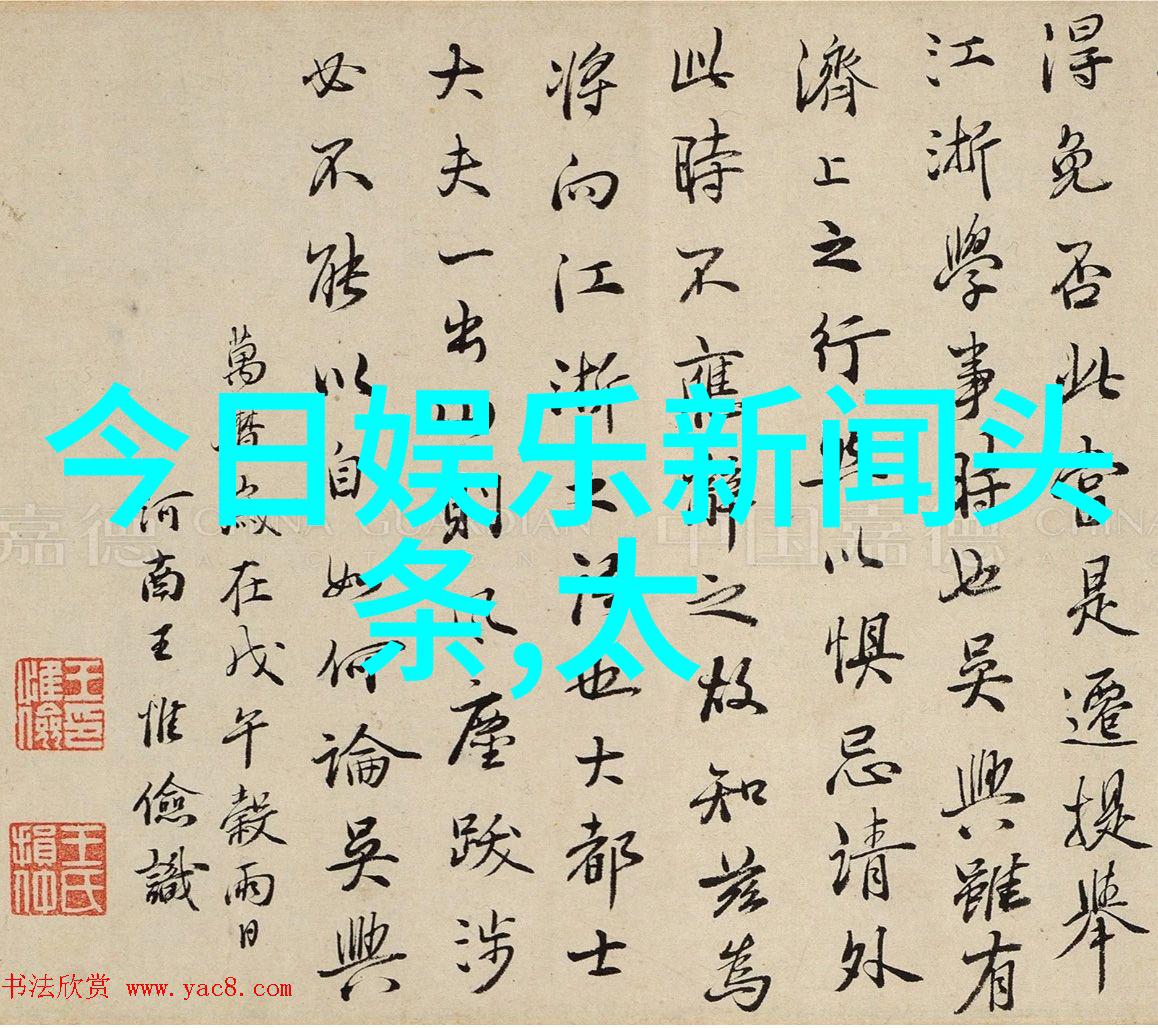 得免否此當是遷提舉
江浙學事時也吳興雖有
濟上之行 以惧忌請外
此時不應辭之故知茲為
将向江浙 也大都士
大夫一出 則 塵跋涉
必不能以自如何論吳興
萬曆 在戊午穀雨日
河南王惟儉識
今日娱乐新闻头
条,太
嘉德 CHINA GUARDIAN
中国嘉德 CHINA
书法欣赏 www.yac8.com